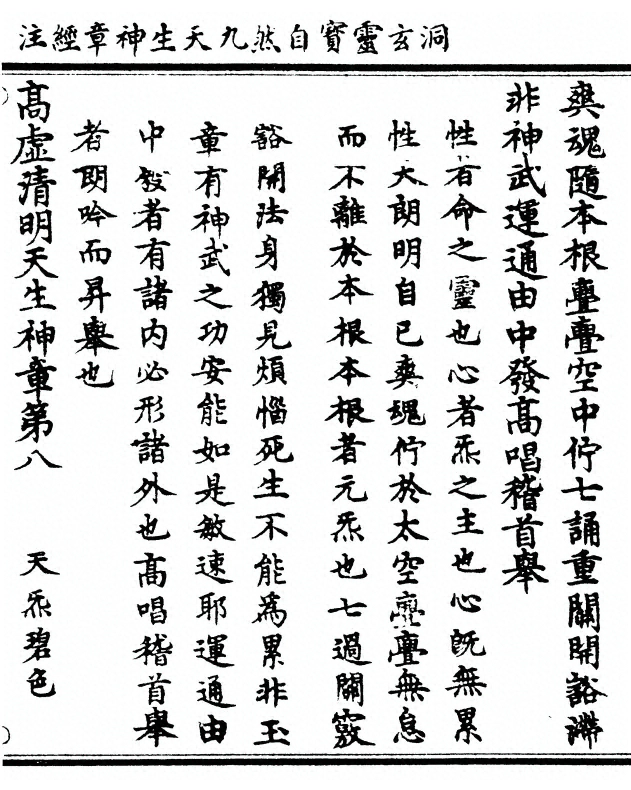 洞玄靈寶自然九天生神章經注
爽魂隨本根亹亹空中佇七誦重關開豁滯
非神武運通由中發髙唱稽首舉
性者命之靈也心者炁之主也心既無累
性天朗明自已爽魂佇於太空亹亹無息
而不離於本根本根者元炁也七過關竅
豁開法身獨見煩惱死生不能為累非玉
章有神武之功安能如是敏速耶運通由
中發者有諸内必形諸外也髙唱稽首舉
者朗吟而昇舉也
髙虛清明天生神章第八　天炁碧色